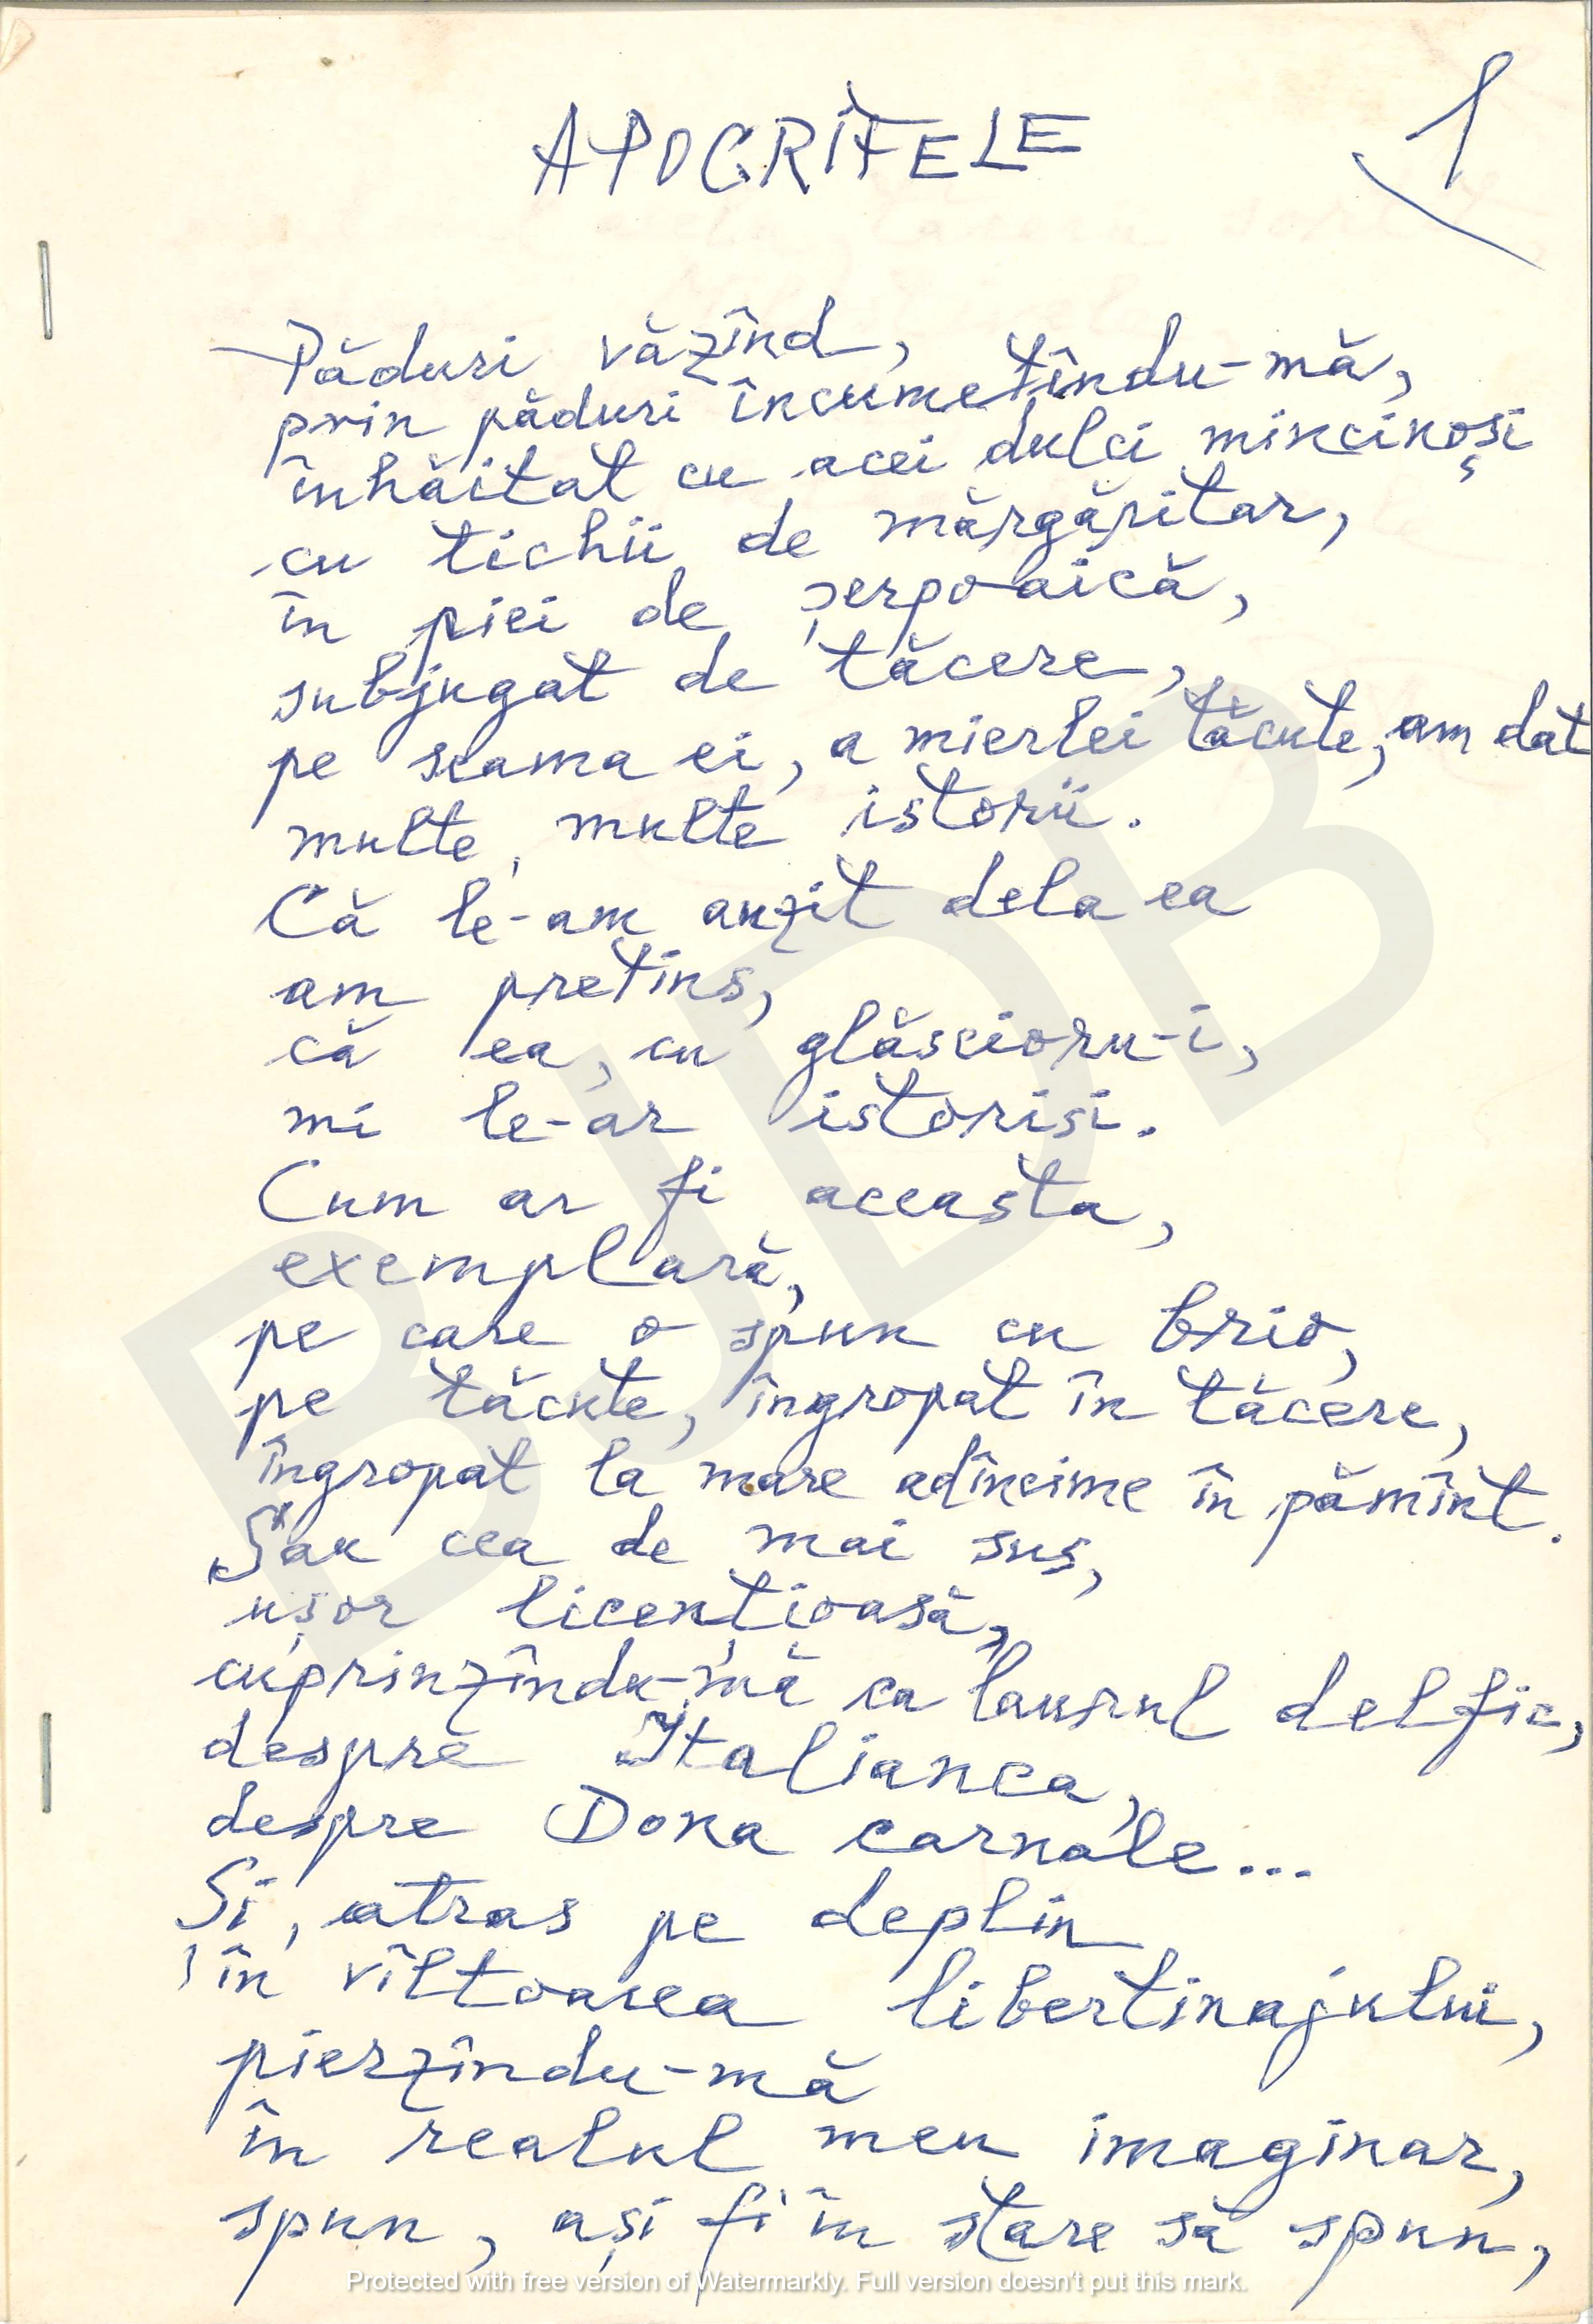 APOCRIFELE
1
Păduri văzînd,
prin păduri încumetîndu-mă,
înhăitat cu acei dulci mincinoși
cu tichii de mărgăritar,
în piei de șerpoaică,
subjugat de tăcere,
pe seama ei, a mierlei tăcute, am dat
multe, multe istorii.
Că le-am auzit dela ea
am pretins,
că ea, cu glăscioru-i,
mi le-ar istorisi.
Cum ar fi aceasta,
exemplară,
pe care o spun cu brio,
pe tăcute, îngropat în tăcere,
îngropat la mare adîncime în pămînt.
Sau cea de mai sus,
ușor licențioasă,
cuprinzîndu-mă ca laurul delfic,
despre Italianca,
despre Dona carnale...
Și, atras pe deplin
în vîltoarea libertinajului,
pierzîndu-mă
în realul meu imaginar,
spun, ași fi în stare să spun,
BJDB
Protected with free version of Watermarkly. Full version doesn't put this mark.